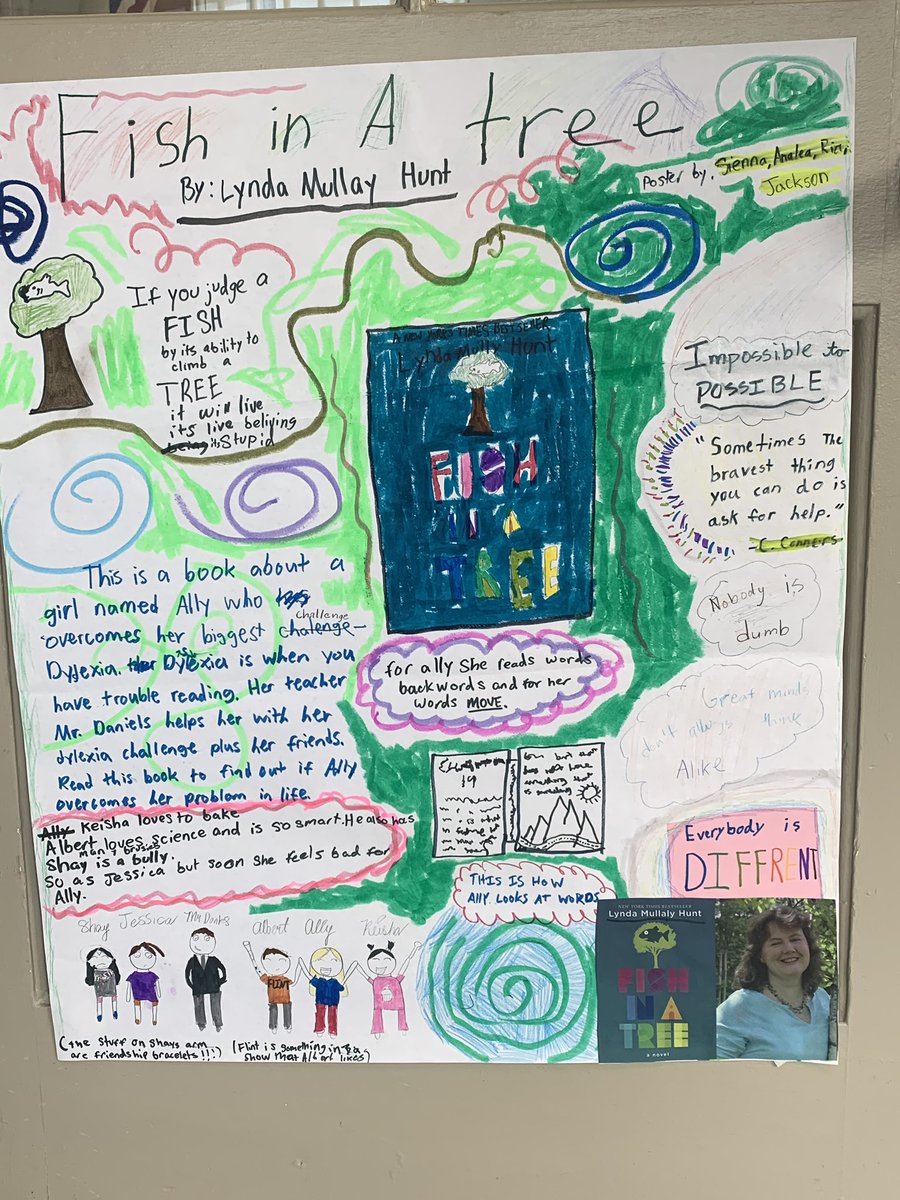 Fish in A tree
By: Lynda Mullay Hunt
Poster by. Sienna, Analea, Rin,
Jackson
If you judge a
FISH
by its ability to
climb a
TREE
it will live
its live beliying
being its Stupid
A NEW YORK TIMES BESTSELLER
Lynda Mully Hunt
FISH
IN A
TREE
Impossible to
POSSIBLE
"Sometimes The
bravest thing
you can do is
ask for help."
-C. Conners
Nobody is
dumb
Great minds
don't always think
Alike
Everybody is
DIFFRENT
This is a book about a
girl named Ally who
challenge
overcomes her biggest chalenge
Dylexia. Dyslexia is when you
have trouble reading. Her teacher
Mr. Daniels helps her with her
dylexia challenge plus her friends.
Read this book to find out if Ally
overcomes her problem in life.
for ally She reads words
backwords and for her
words MOVE.
Ally Keisha loves to bake
Albert loves science and is so smart. He also has
many
Shay is a bully.
So as Jessica but soon she feels bad for
Ally.
19
THIS IS HOW
ALLY LOOKS AT WORDS
Shay Jessica Albert Ally Keisha
FLINT
(the stuff on shays arm
are friendship bracelets!!!)
(Flint is something in a
show that Albert likes)
NEW YORK TIMES BESTSELLER
Lynda Mullaly Hunt
FISH
IN A
TREE
a novel